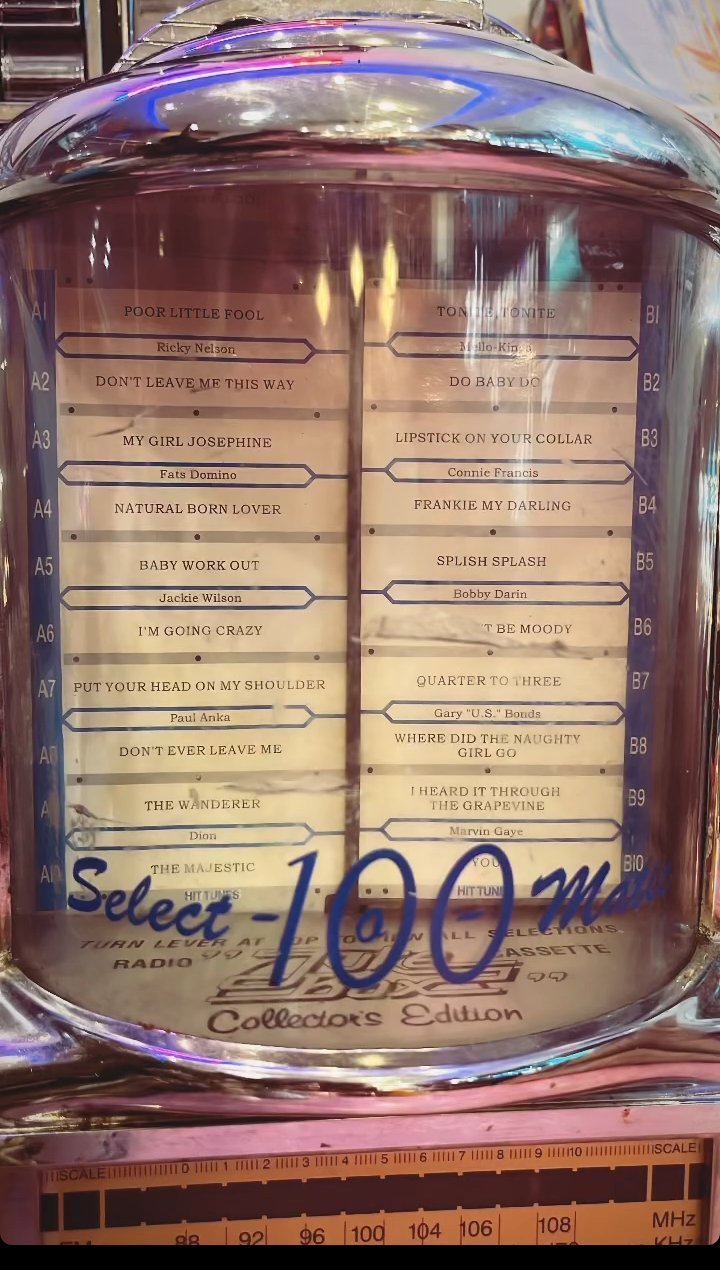 A1 POOR LITTLE FOOL
Ricky Nelson
A2 DON'T LEAVE ME THIS WAY
A3 MY GIRL JOSEPHINE
Fats Domino
A4 NATURAL BORN LOVER
A5 BABY WORK OUT
Jackie Wilson
A6 I'M GOING CRAZY
A7 PUT YOUR HEAD ON MY SHOULDER
Paul Anka
DON'T EVER LEAVE ME
THE WANDERER
Dion
THE MAJESTIC
HIT TUNES
TONITE, TONITE B1
Mello-Kings
DO BABY DO B2
LIPSTICK ON YOUR COLLAR B3
Connie Francis
FRANKIE MY DARLING B4
SPLISH SPLASH B5
Bobby Darin
BE MOODY B6
QUARTER TO THREE B7
Gary "U.S." Bonds
WHERE DID THE NAUGHTY B8
GIRL GO
I HEARD IT THROUGH B9
THE GRAPEVINE
Marvin Gaye
YOU B10
HIT TUNES
Select-100
TURN LEVER AT TOP TO VIEW ALL SELECTIONS
RADIO CASSETTE
Collector's Edition
SCALE 0 1 2 3 4 5 6 7 8 9 10 SCALE
88 92 96 100 104 106 108 MHz
KHz